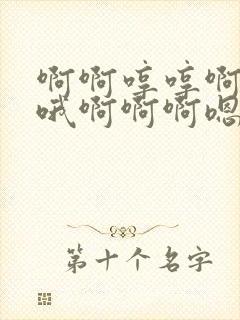 啊啊哼哼啊
哦啊啊啊嗯
第十个名字